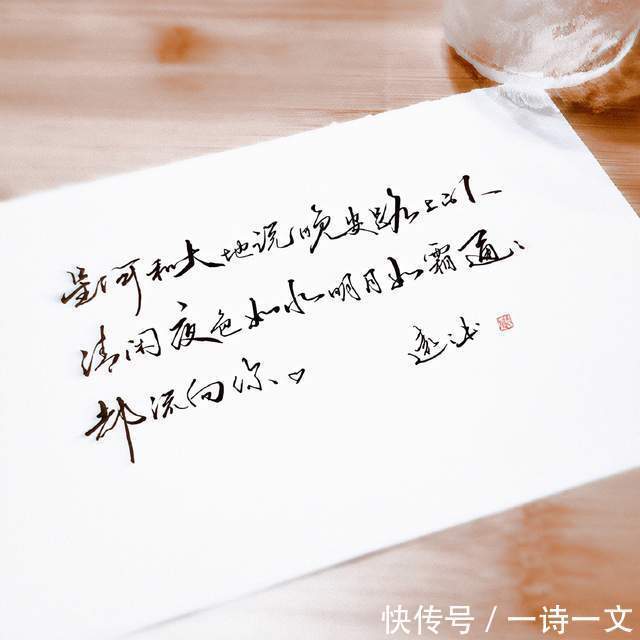 星河和大地说晚安路上的人
清闲夜色如水明月如霜通通
都流向你、
快传号 / 一诗一文